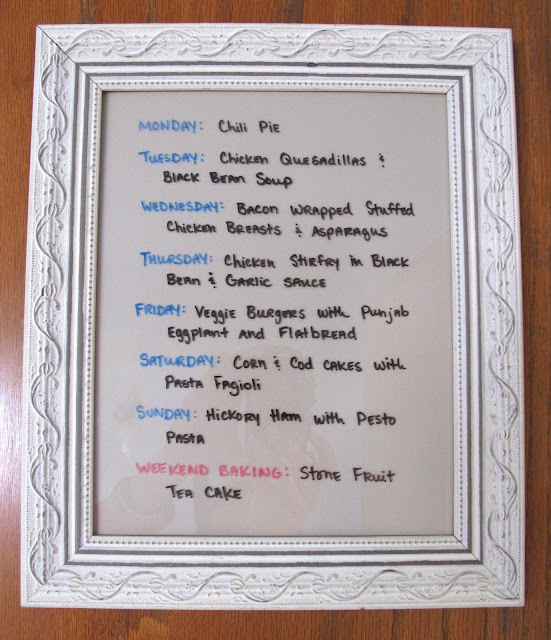 MONDAY: Chili Pie
TUESDAY: Chicken Quesadillas &
Black Bean Soup
WEDNESDAY: Bacon Wrapped Stuffed
Chicken Breasts & Asparagus
THURSDAY: Chicken Stirfry in Black
Bean & Garlic Sauce
FRIDAY: Veggie Burgers with Punjab
Eggplant and Flatbread
SATURDAY: Corn & Cod Cakes with
Pasta Fagioli
SUNDAY: Hickory Ham with Pesto
Pasta
WEEKEND BAKING: Stone Fruit
Tea Cake